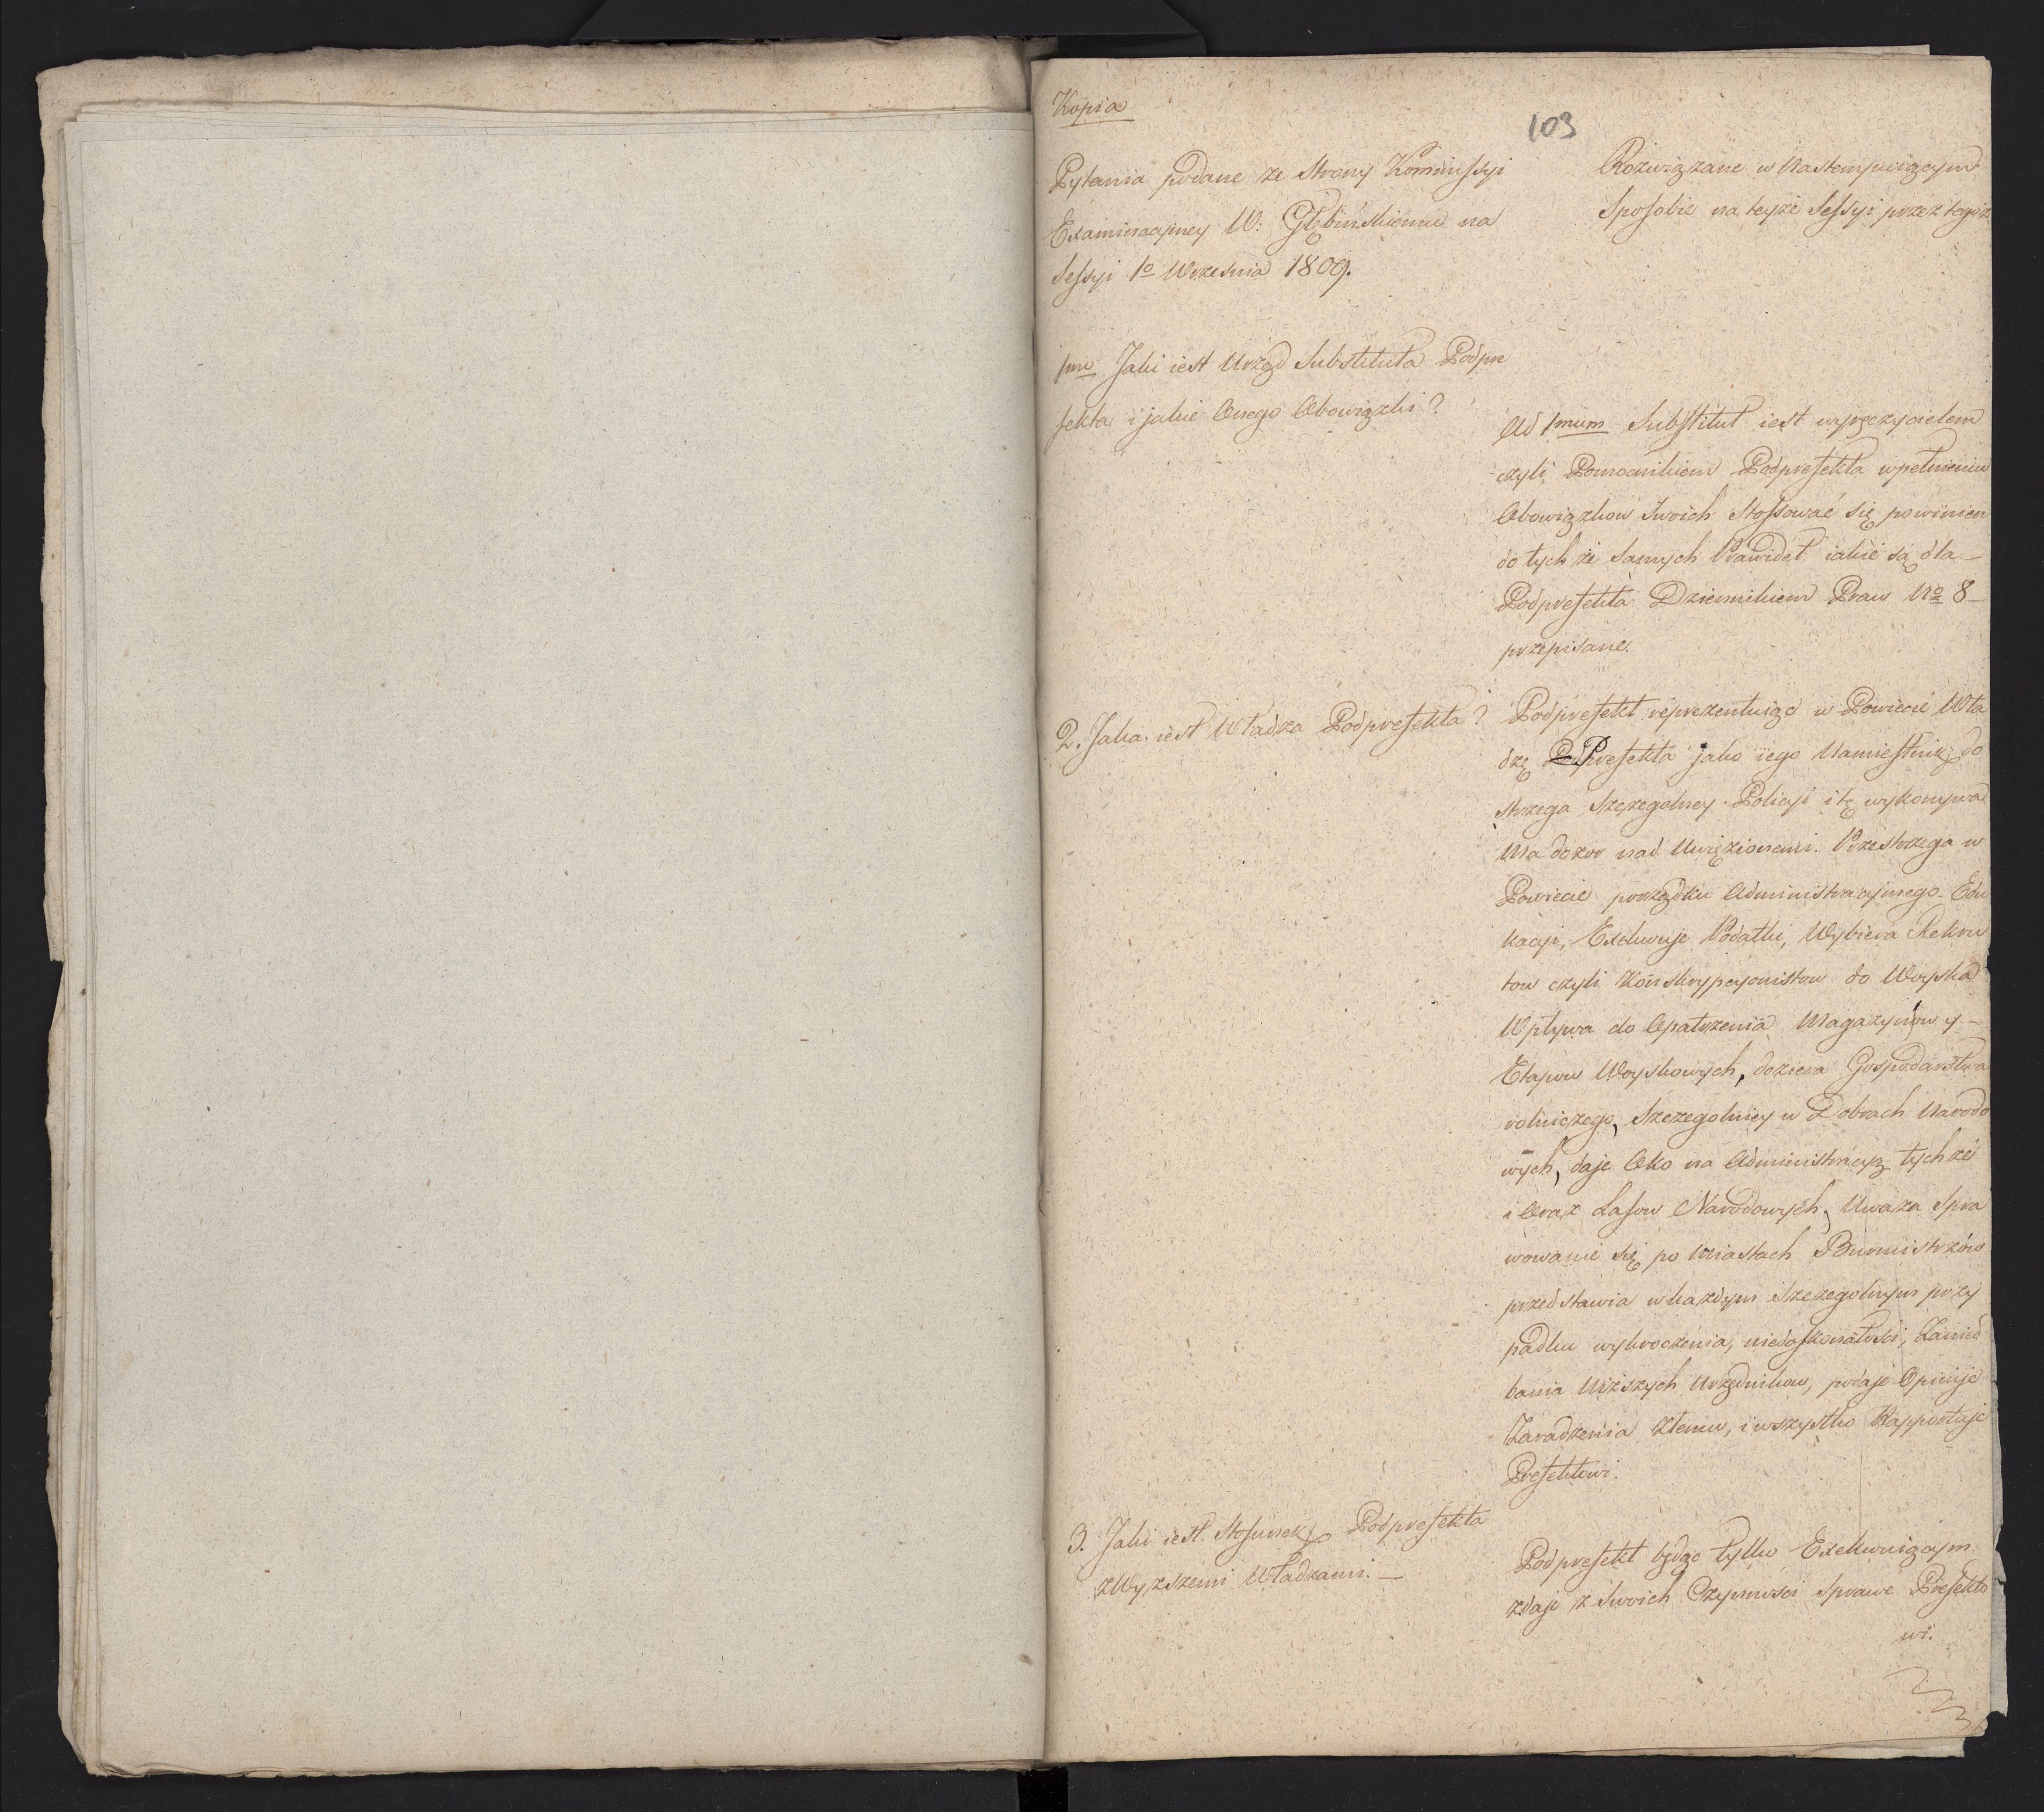 Kopia
103
Pytania podane ze Strony Kommissyi
Examinacyiney W: Głębińskiemu na
Sessyi 1o Września 1809.
Rozwiązane w Nastempuiącym
Sposobie na teyże Sessyi przez tegoż
1mo Jaki iest Urząd Substituta Podpre
fekta i jakie Onego Obowiązki?
Ad 1mum Substitut iest wyręczycielem
czyli Pomocnikiem Podprefekta w pełnieniu
Obowiązkow Swoich Stossować się powinien
do tych że Samych Prawideł iakie są dla –
Podprefekta Dziennikiem Praw No 8 –
przepisane.
2. Jaka iest Władza Podprefekta?
Podprefekt reprezentuiąc w Powiecie Wła
dzę Prefekta jako iego Namiestnik, do
strzega Szczegolney Policyi i tę wykonywa
Ma dozor nad Uwięzionemi. Przestrzega w
Powiecie porządku Administracyinego. Edu
kacyi, Exekwuje Podatki, Wybiera Rekru
tow czyli Konskrypcyonistow do Woyska
Wpływa do Opatrzenia Magazynow y –
Etapow Woyskowych, doziera Gospodarstwa
rolniczego, Szczegolniey w Dobrach Narodo
wych, daje Oko na Administracyą tych że
i Oraz Lasow Narodowych, Uważa Spra
wowanie się po Miastach Burmistrzów
przedstawia w każdym Szczegolnym przy
padku wykroczenia, niedoskonałości, Zanied
bania Niższych Urzędnikow, podaje Opinije
Zaradzenia Złemu, i wszystko Rapportuje
Prefektowi.
3. Jaki iest Stosunek Podprefekta
z Wyższemi Władzami. –
Podprefekt będąc tylko Exekwuiącym
zdaje z Swoich Czynności Sprawę Prefekto
wi.